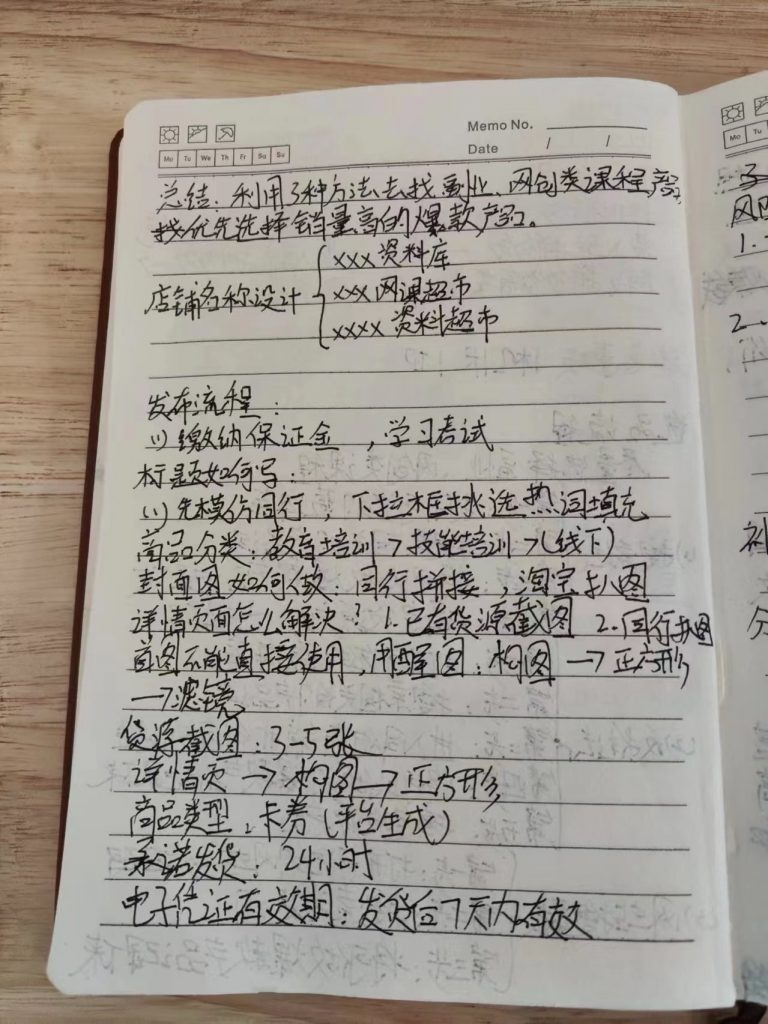 Memo No.
Date / /
Mo Tu We Th Fr Sa Su
总结:利用3种方法去找副业、网创类课程,产品
找优先选择销量高的爆款产品。
xxx资料库
店铺名称设计 xxx网课超市
xxxx 资料超市
发布流程:
(1)缴纳保证金,学习考试
标题如何写:
(1)先模仿同行,下拉框挑选热词填充
商品分类:教育培训>技能培训>(线下)
封面图如何做:同行拼接,淘宝扒图
详情页面怎么解决?1.已有货源截图 2.同行扒图
首图不能直接使用,用醒图:构图→正方形
→滤镜
货源截图:3-5张
详情页→构图→正方形
商品类型:卡券(平台生成)
承诺发货:24小时
电子凭证有效期:发货后7天内有效
Mo Tu
风
1.
2.
补
分